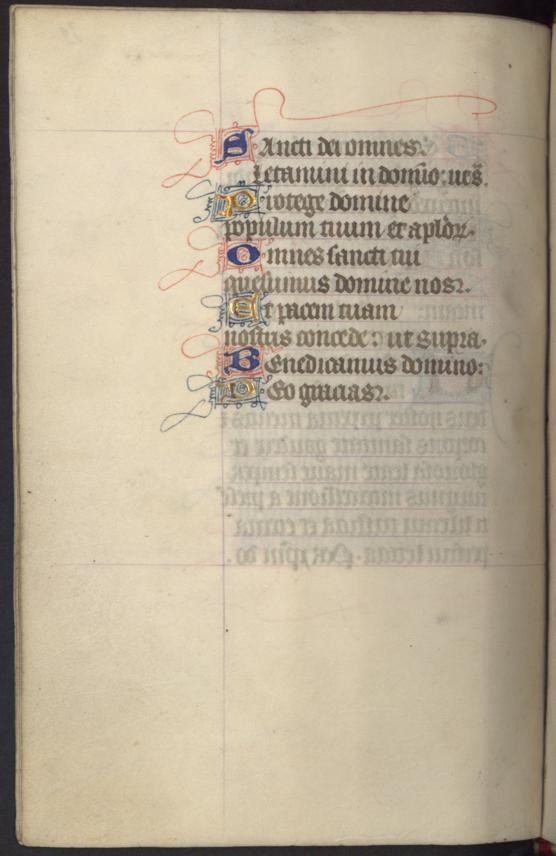 Sancti dei omnes.
Letamini in domino: ués.
Protege domine
populum tuum et aplōꝝ.
Omnes sancti tui
quesumus domine nos⁊.
Et pacem tuam
nostris concede: ut supra.
Benedicamus domino:
Deo gracias⁊.